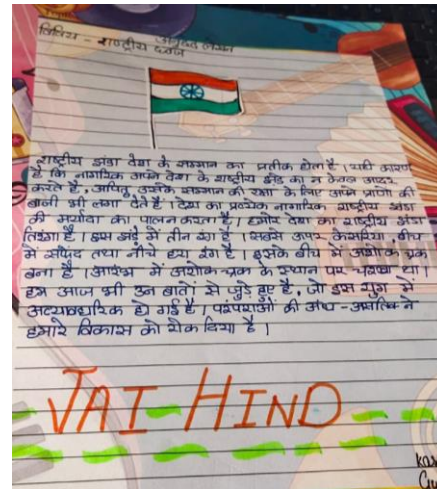 अनुच्छेद लेखन
विषय - राष्ट्रीय ध्वज
राष्ट्रीय झंडा देश के सम्मान का प्रतीक होता है। यही कारण
है कि नागरिक अपने देश के राष्ट्रीय झंडे का न केवल आदर
करते है, अपितु उसके सम्मान की रक्षा के लिए अपने प्राणो की
बाजी भी लगा देते हैं। देश का प्रत्येक नागरिक राष्ट्रीय झंडा
की मर्यादा का पालन करता है। हमारे देश का राष्ट्रीय झंडा
तिरंगा है। इस झंडे में तीन रंग है। सबसे ऊपर केसरिया बीच
में सफेद तथा नीचे हरा रंग है। इसके बीच में अशोक चक्र
बना है। आरंभ में अशोक-चक्र के स्थान पर चरखा था।
हम आज भी उन बातों से जुड़े हुए है, जो इस युग में
अव्यावहारिक हो गई है। परंपराओं की अंध-
हमारे विकास को रोक दिया है।
JAI-HIND